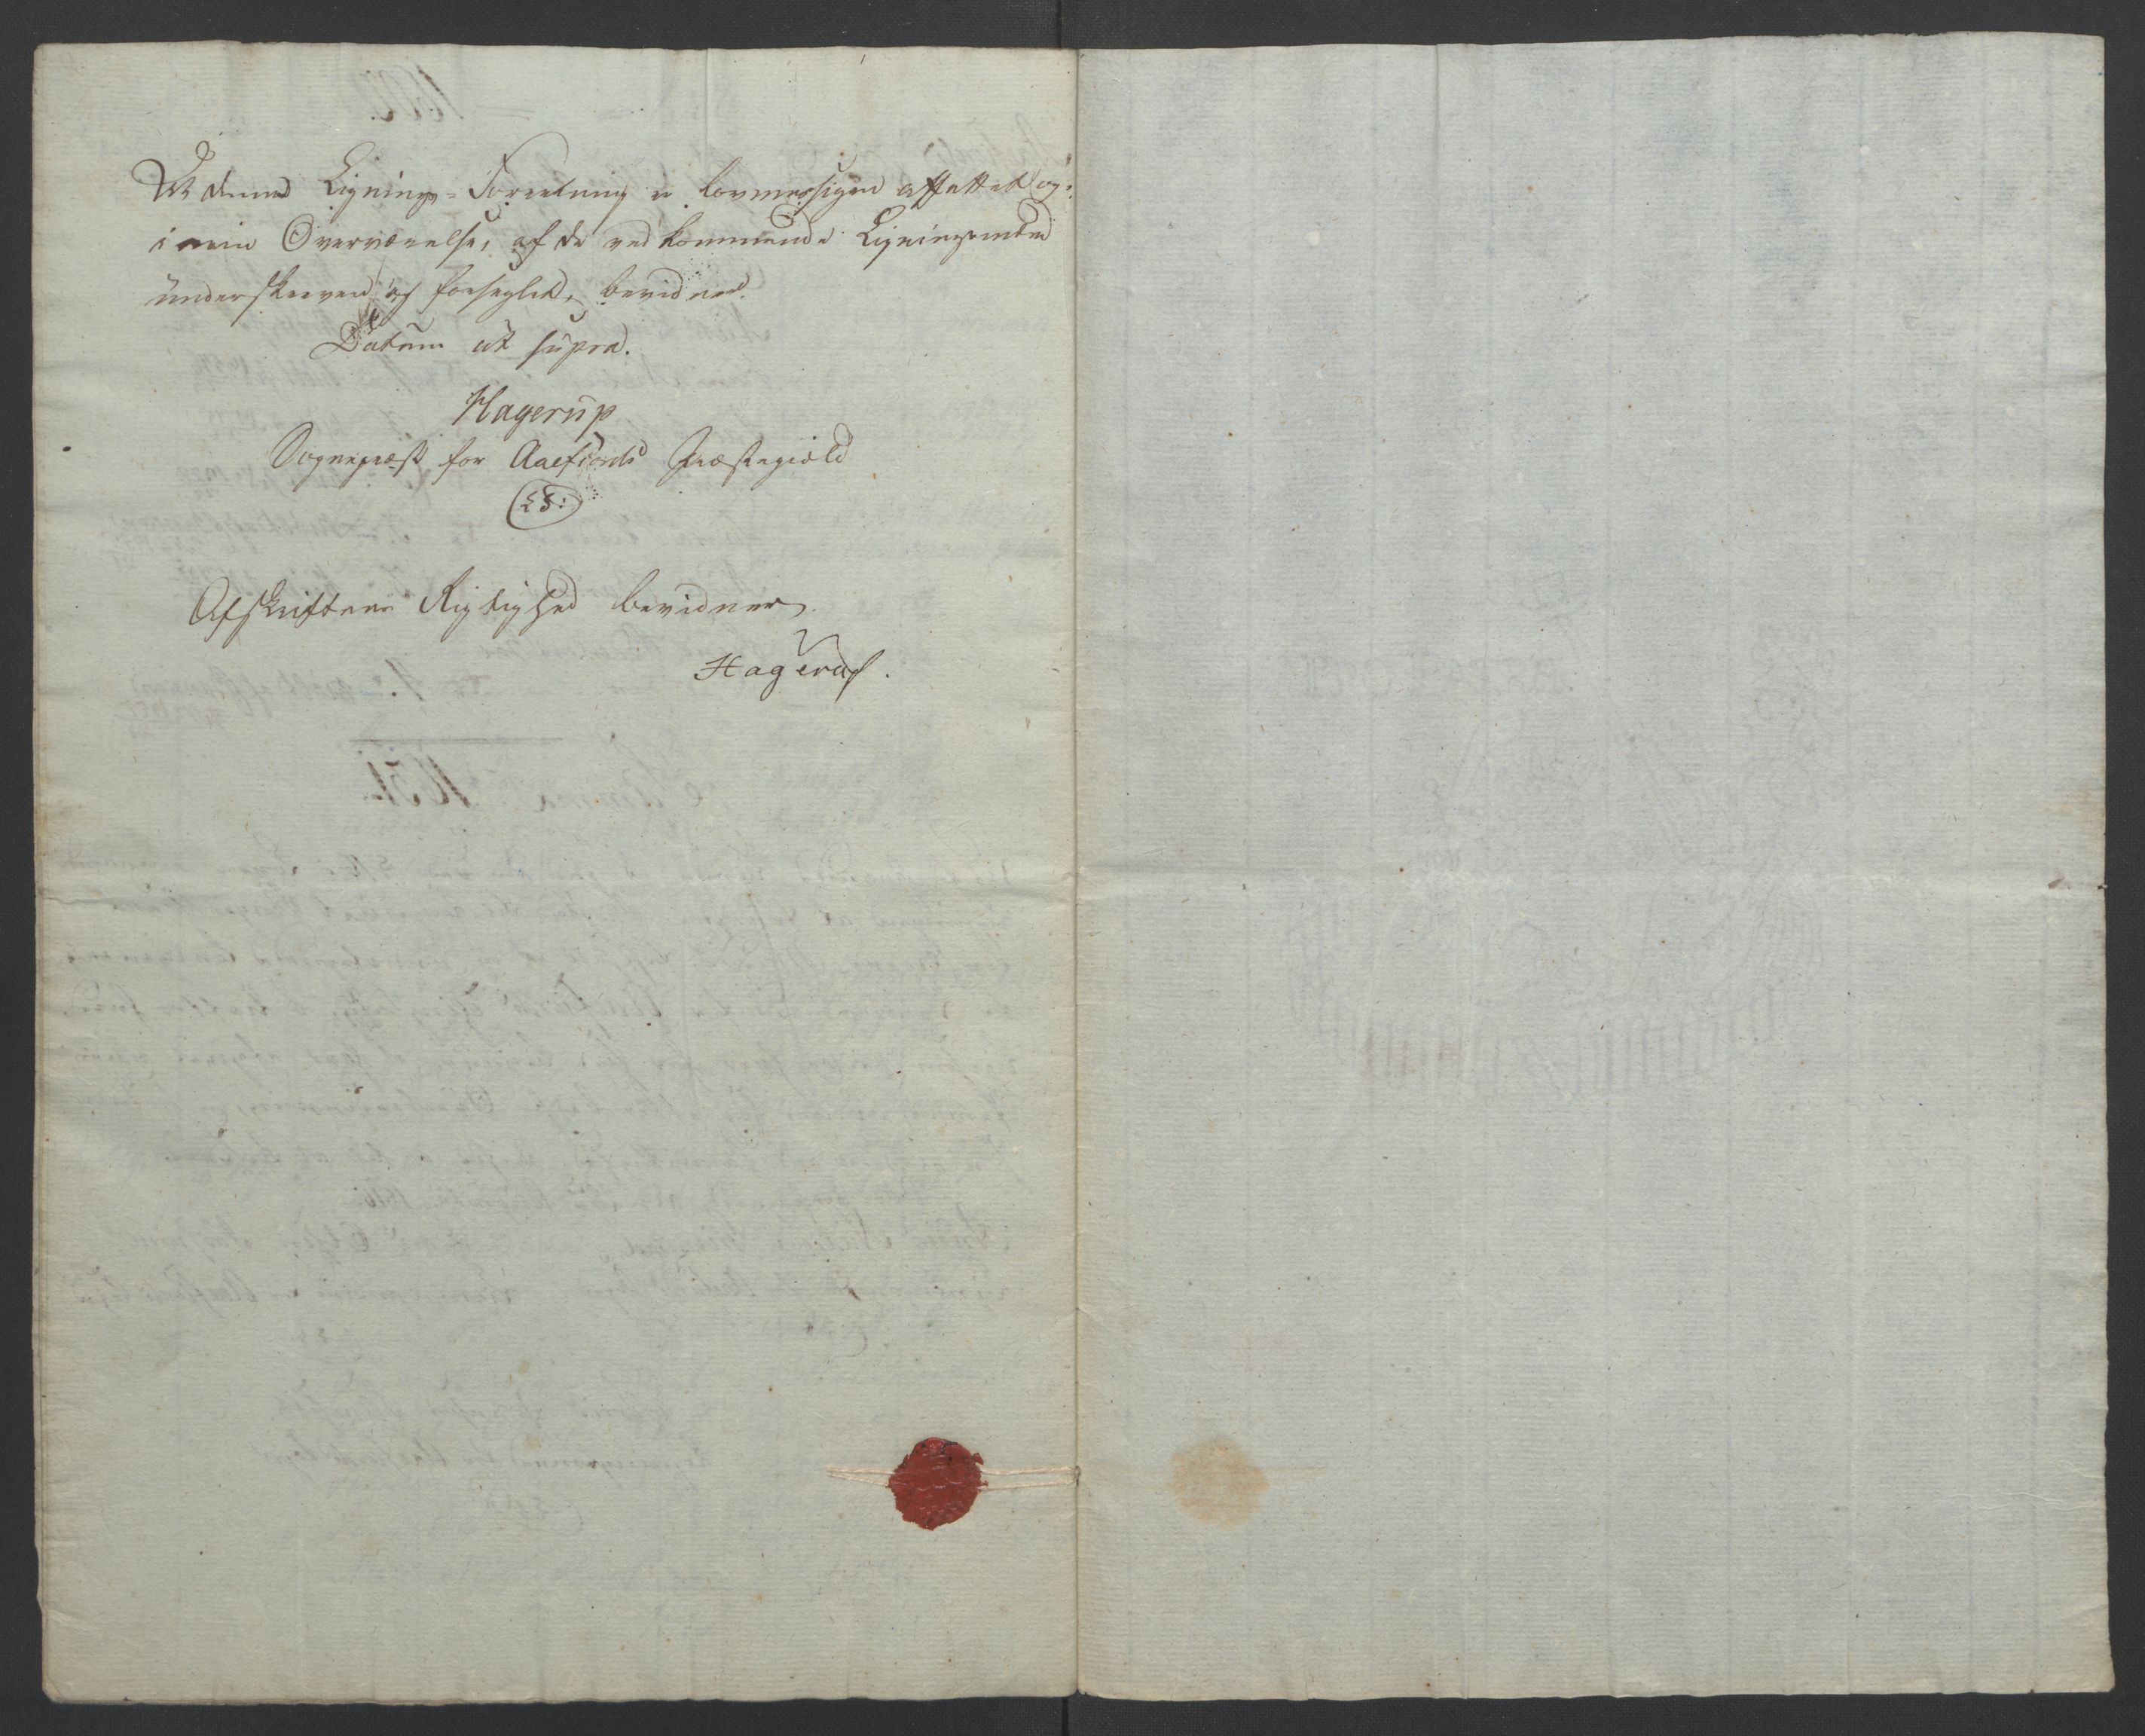 At denne Lignings-Forretning er lovmessigen affattet og
i min Overværelse, af de vedkommende Ligningsmænd
underskreven og forseglet, bevidner.
Datum ut supra.
Hagerup
Sognepræst for Aaefiords Præstegield
(LS:)
Afskriftens Rigtighed bevidner
Hagerup.